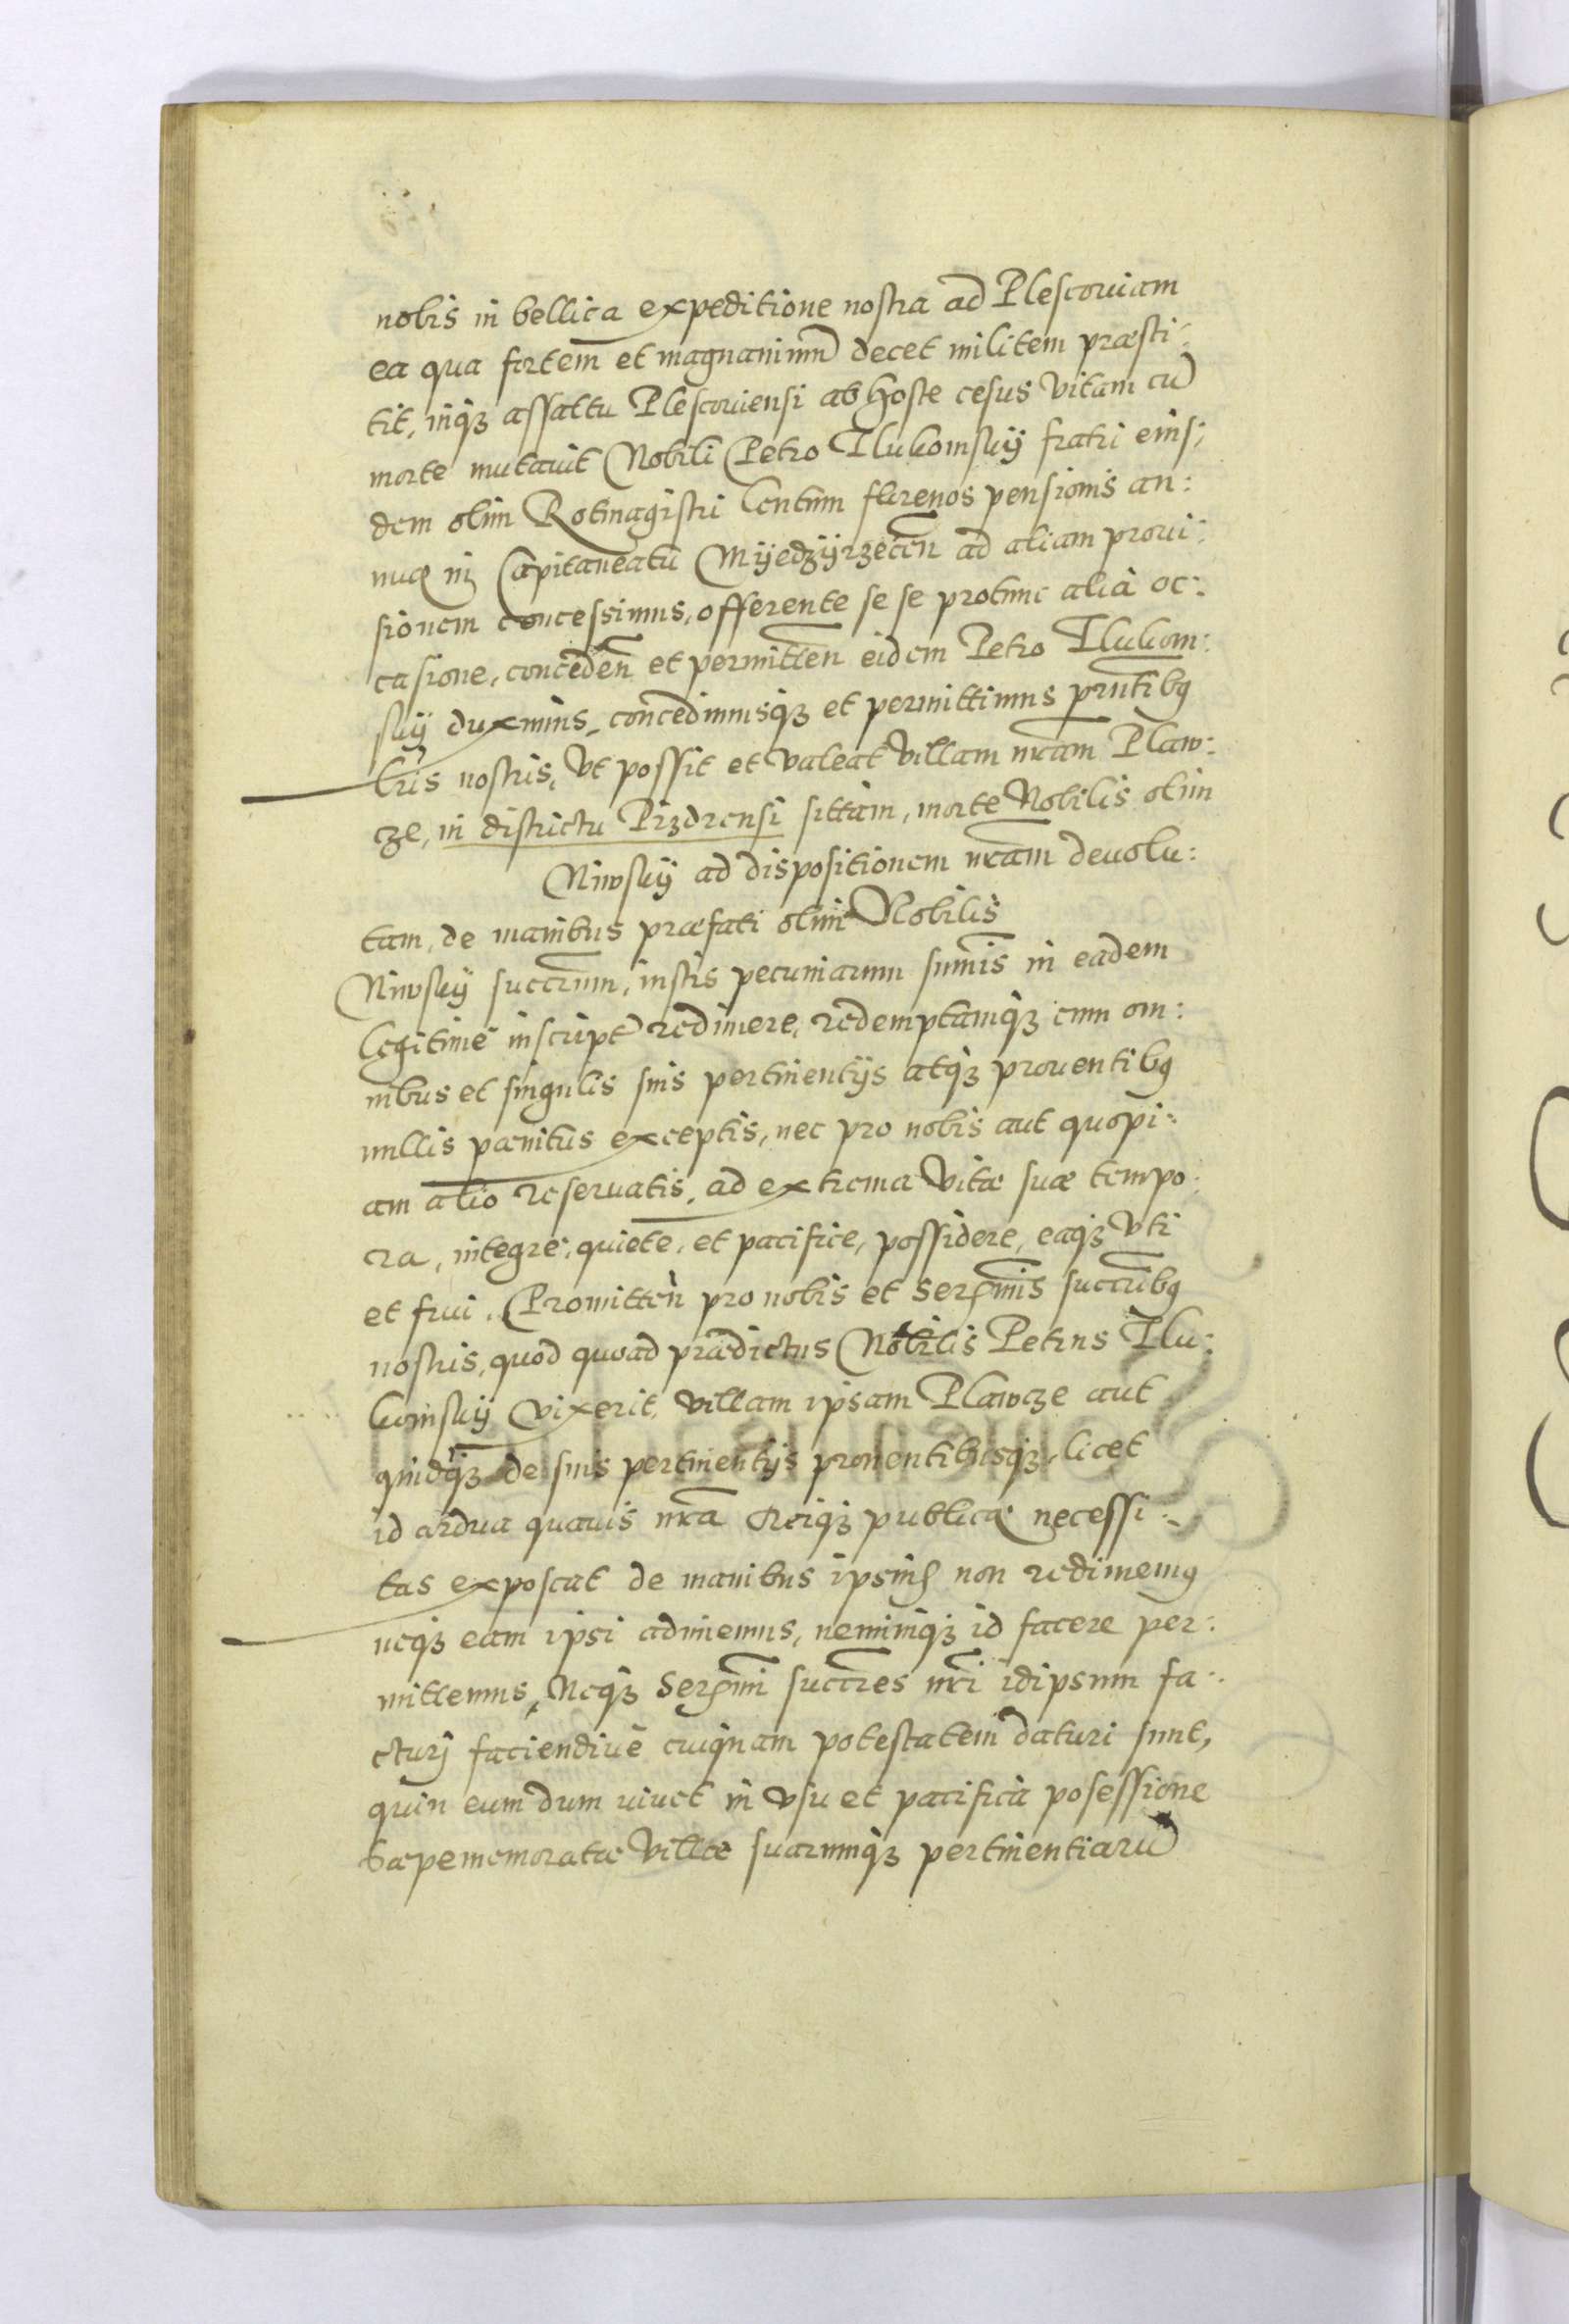 nobis in bellica expeditione nostra ad Plescouiam
ea qua fortem et magnanimũ decet militem præsti:
tit, inq₃ assaltu Plescouiensi ab hoste cesus vitam cũ
morte mutauit Nobili Petro Ilukomskÿ fratri eius:
dem olim Rotmagistri Centum florenos pensionis an:
nuæ in Capitaneatu Mÿedzÿrzecen̄ ad aliam proui:
sionem concessimus, offerente se se protunc alià oc:
casione, conceden̄ et permitten̄ eidem Petro Ilukom:
skÿ duximus, concedimusq₃ et permittimus pn̄tibꝯ
lr̄is nostris, vt possit et valeat villam nr̄am Plaw:
cze, in districtu Pizdrensi sittam, morte Nobilis olim
Niwskÿ ad dispositionem nr̄am deuolu:
tam, de manibus præfati olim Nobilis
Niwskÿ succr̄um, iustis pecuniarum sum̄is in eadem
legitimè inscript̄ redimere, redemptamq₃ cum om:
nibus et singulis suis pertinentijs atq₃ prouentibꝯ
nullis pænitus exceptis, nec pro nobis aut quopi:
am alio reseruatis, ad extrema vitæ suæ tempo:
ra, integrè, quietè, et pacificè, possidere, eaq₃ vti
et frui. Promitten̄ pro nobis et Serm̄is succr̄ibꝯ
nostris, quod quoad prædictus Nobilis Petrus Ilu:
komskÿ vixerit, villam ipsam Plawcze aut
quidq₃ de suis pertinentijs prouentibusq₃, licet
id ardua quauis nr̄a Reiq₃ publicæ necessi:
tas exposcat de manibus ipsius non redimemꝯ
neq₃ eam ipsi adimemus, neminiq₃ id facere per:
mittemus, Neq₃ Serm̄i succr̄es nr̄i idipsum fa:
cturj faciendiuè cuiquam potestatem daturi sunt,
quin eum dum viuet in vsu et pacificà posessione
Sæpememoratæ Villæ suarumq₃ pertinentiarũ